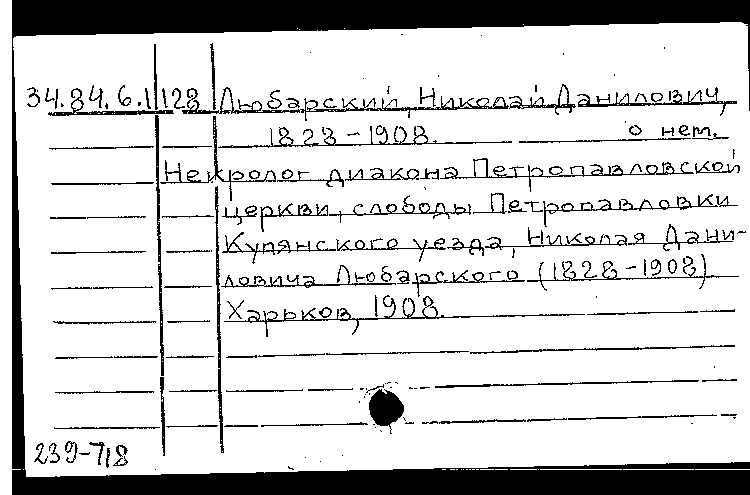 34.84.6.1 128 Любарский, Николай Данилович,
1828-1908. о нем.
Некролог диакона Петропавловской
церкви, слободы Петропавловки
Купянского уезда, Николая Дани-
ловича Любарского (1828-1908)
Харьков, 1908.
239-718